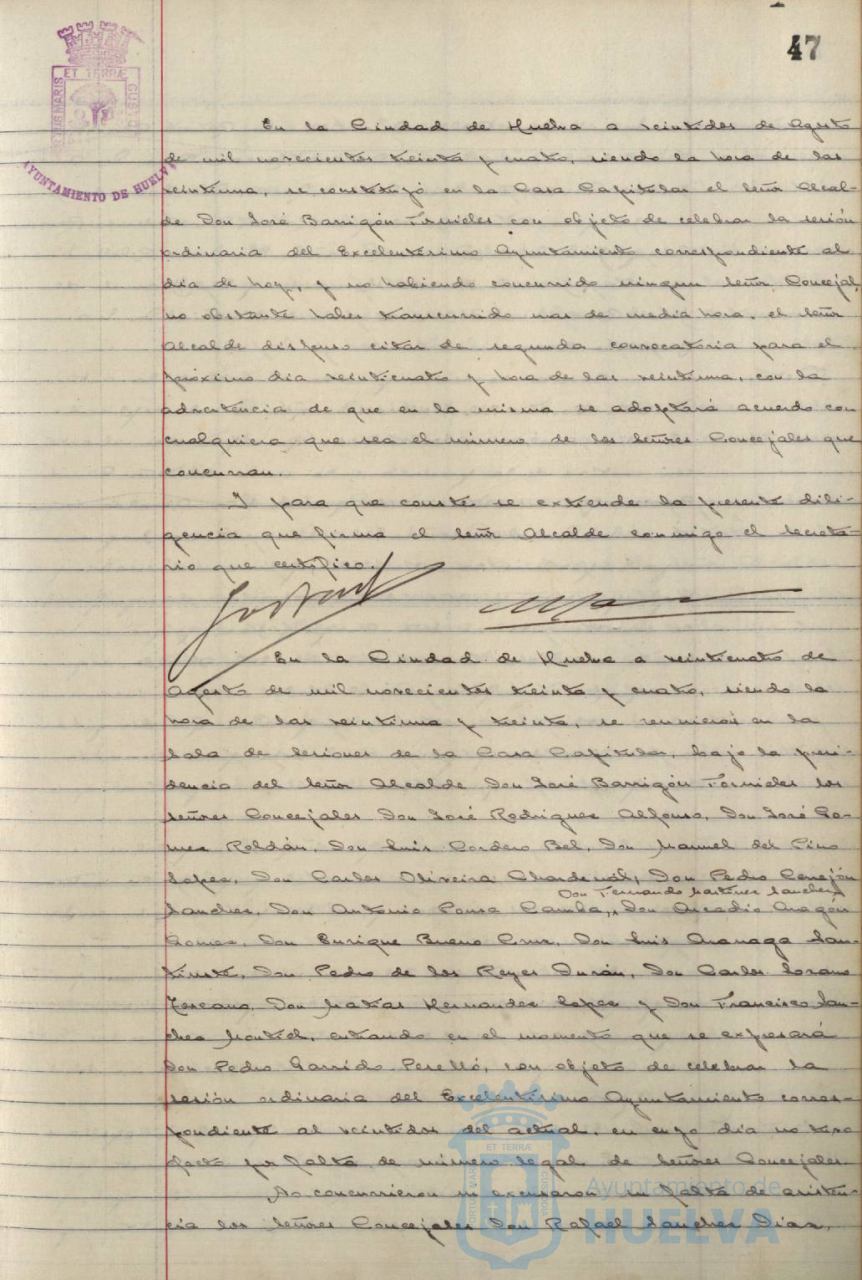 47
ET TERRÆ
PORTUS MARIS
CUSTODIA
AYUNTAMIENTO DE HUELVA
En la Ciudad de Huelva a veintidos de Agosto
de mil novecientos treinta y cuatro, siendo la hora de las
veintiuna, se constituyó en la Casa Capitular el señor Alcal-
de Don José Barrigón Fornieles con objeto de celebrar la sesión
ordinaria del Excelentísimo Ayuntamiento correspondiente al
día de hoy, y no habiendo concurrido ningun señor Concejal,
no obstante haber transcurrido mas de media hora, el señor
Alcalde dispuso citar de segunda convocatoria para el
próximo dia veinticuatro y hora de las veintiuna, con la
advertencia de que en la misma se adoptará acuerdo con
cualquiera que sea el número de los señores Concejales que
concurran.
Y para que conste se extiende la presente dili-
gencia que firma el señor Alcalde conmigo el Secreta-
rio que certifico.
En la Ciudad de Huelva a veinticuatro de
Agosto de mil novecientos treinta y cuatro, siendo la
hora de las veintiuna y treinta, se reunieron en la
Sala de Sesiones de la Casa Capitular, bajo la presi-
dencia del señor Alcalde Don José Barrigón Fornieles los
señores Concejales Don José Rodriguez Alfonso, Don José Go-
mez Roldán, Don Luis Cordero Bel, Don Manuel del Pino
Lopez, Don Carlos Oliveira Chardenal, Don Pedro Cerrejón
Don Fernando Martinez Sanchez
Sanchez, Don Antonio Ponsa Camba, Don Arcadio Aragón
Gomez, Don Enrique Bueno Cruz, Don Luis Ananaga San-
, Don Pedro de los Reyes Durán, Don Carlos Lozano
Toscano, Don Matias Hernandez Lopez y Don Francisco San-
chez Montiel, entrando en el momento que se expresará
Don Pedro Garrido Perelló, con objeto de celebrar la
sesión ordinaria del Excelentísimo Ayuntamiento corres-
pondiente al veintidos del actual, en cuyo día no tuvo
efecto por falta de número legal de señores Concejales.
No concurrieron ni excusaron su falta de asisten-
cia los señores Concejales Don Rafael Sanchez Diaz,
Ayuntamiento de
HUELVA